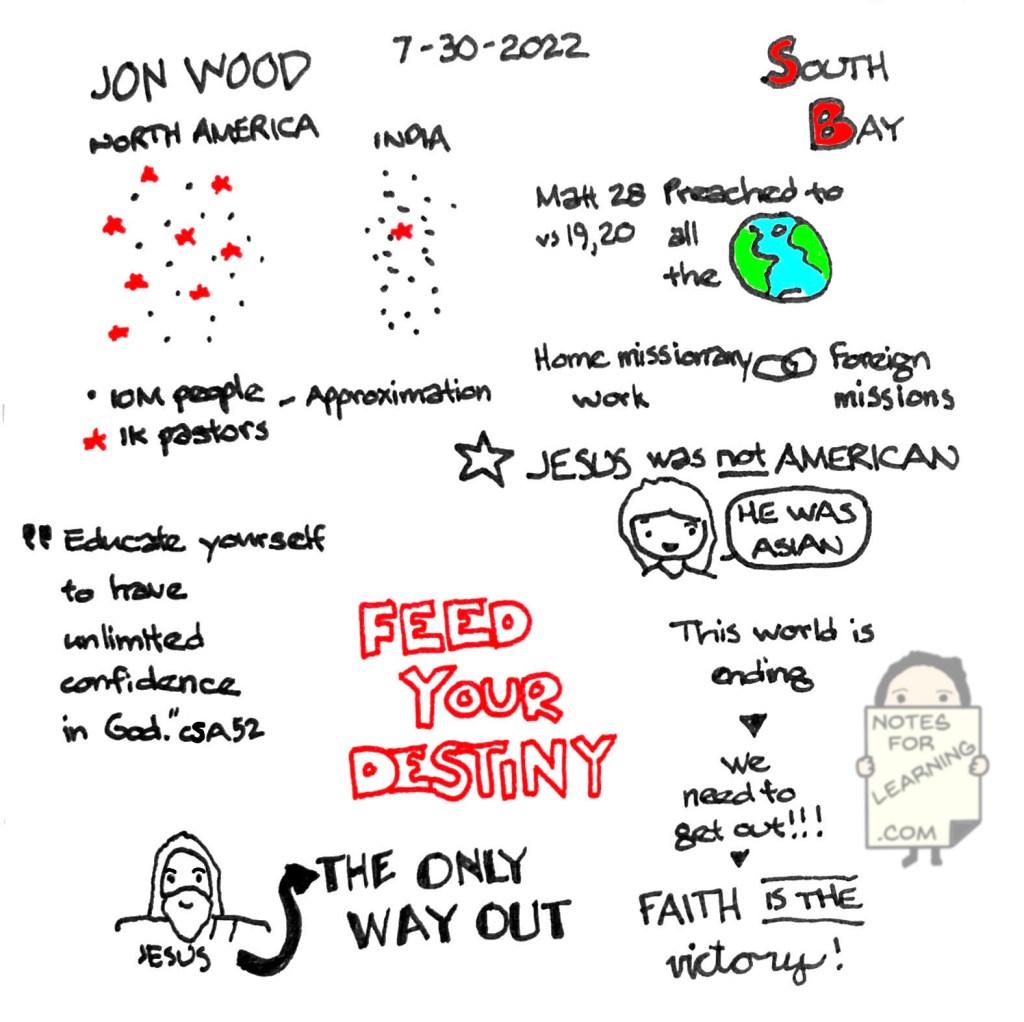 7-30-2022
JON WOOD
SOUTH
BAY
NORTH AMERICA
INDIA
• 10M people - Approximation
★ 1K pastors
Matt 28 Preached to
vs 19,20 all
the
Home missionary Foreign
work missions
☆ JESUS was not AMERICAN
HE WAS
ASIAN
" Educate yourself
to have
unlimited
confidence
in God." CSA52
FEED
YOUR
DESTINY
This world is
ending
we
need to
get out!!!
FAITH IS THE
victory!
JESUS
THE ONLY
WAY OUT
NOTES
FOR
LEARNING
.COM